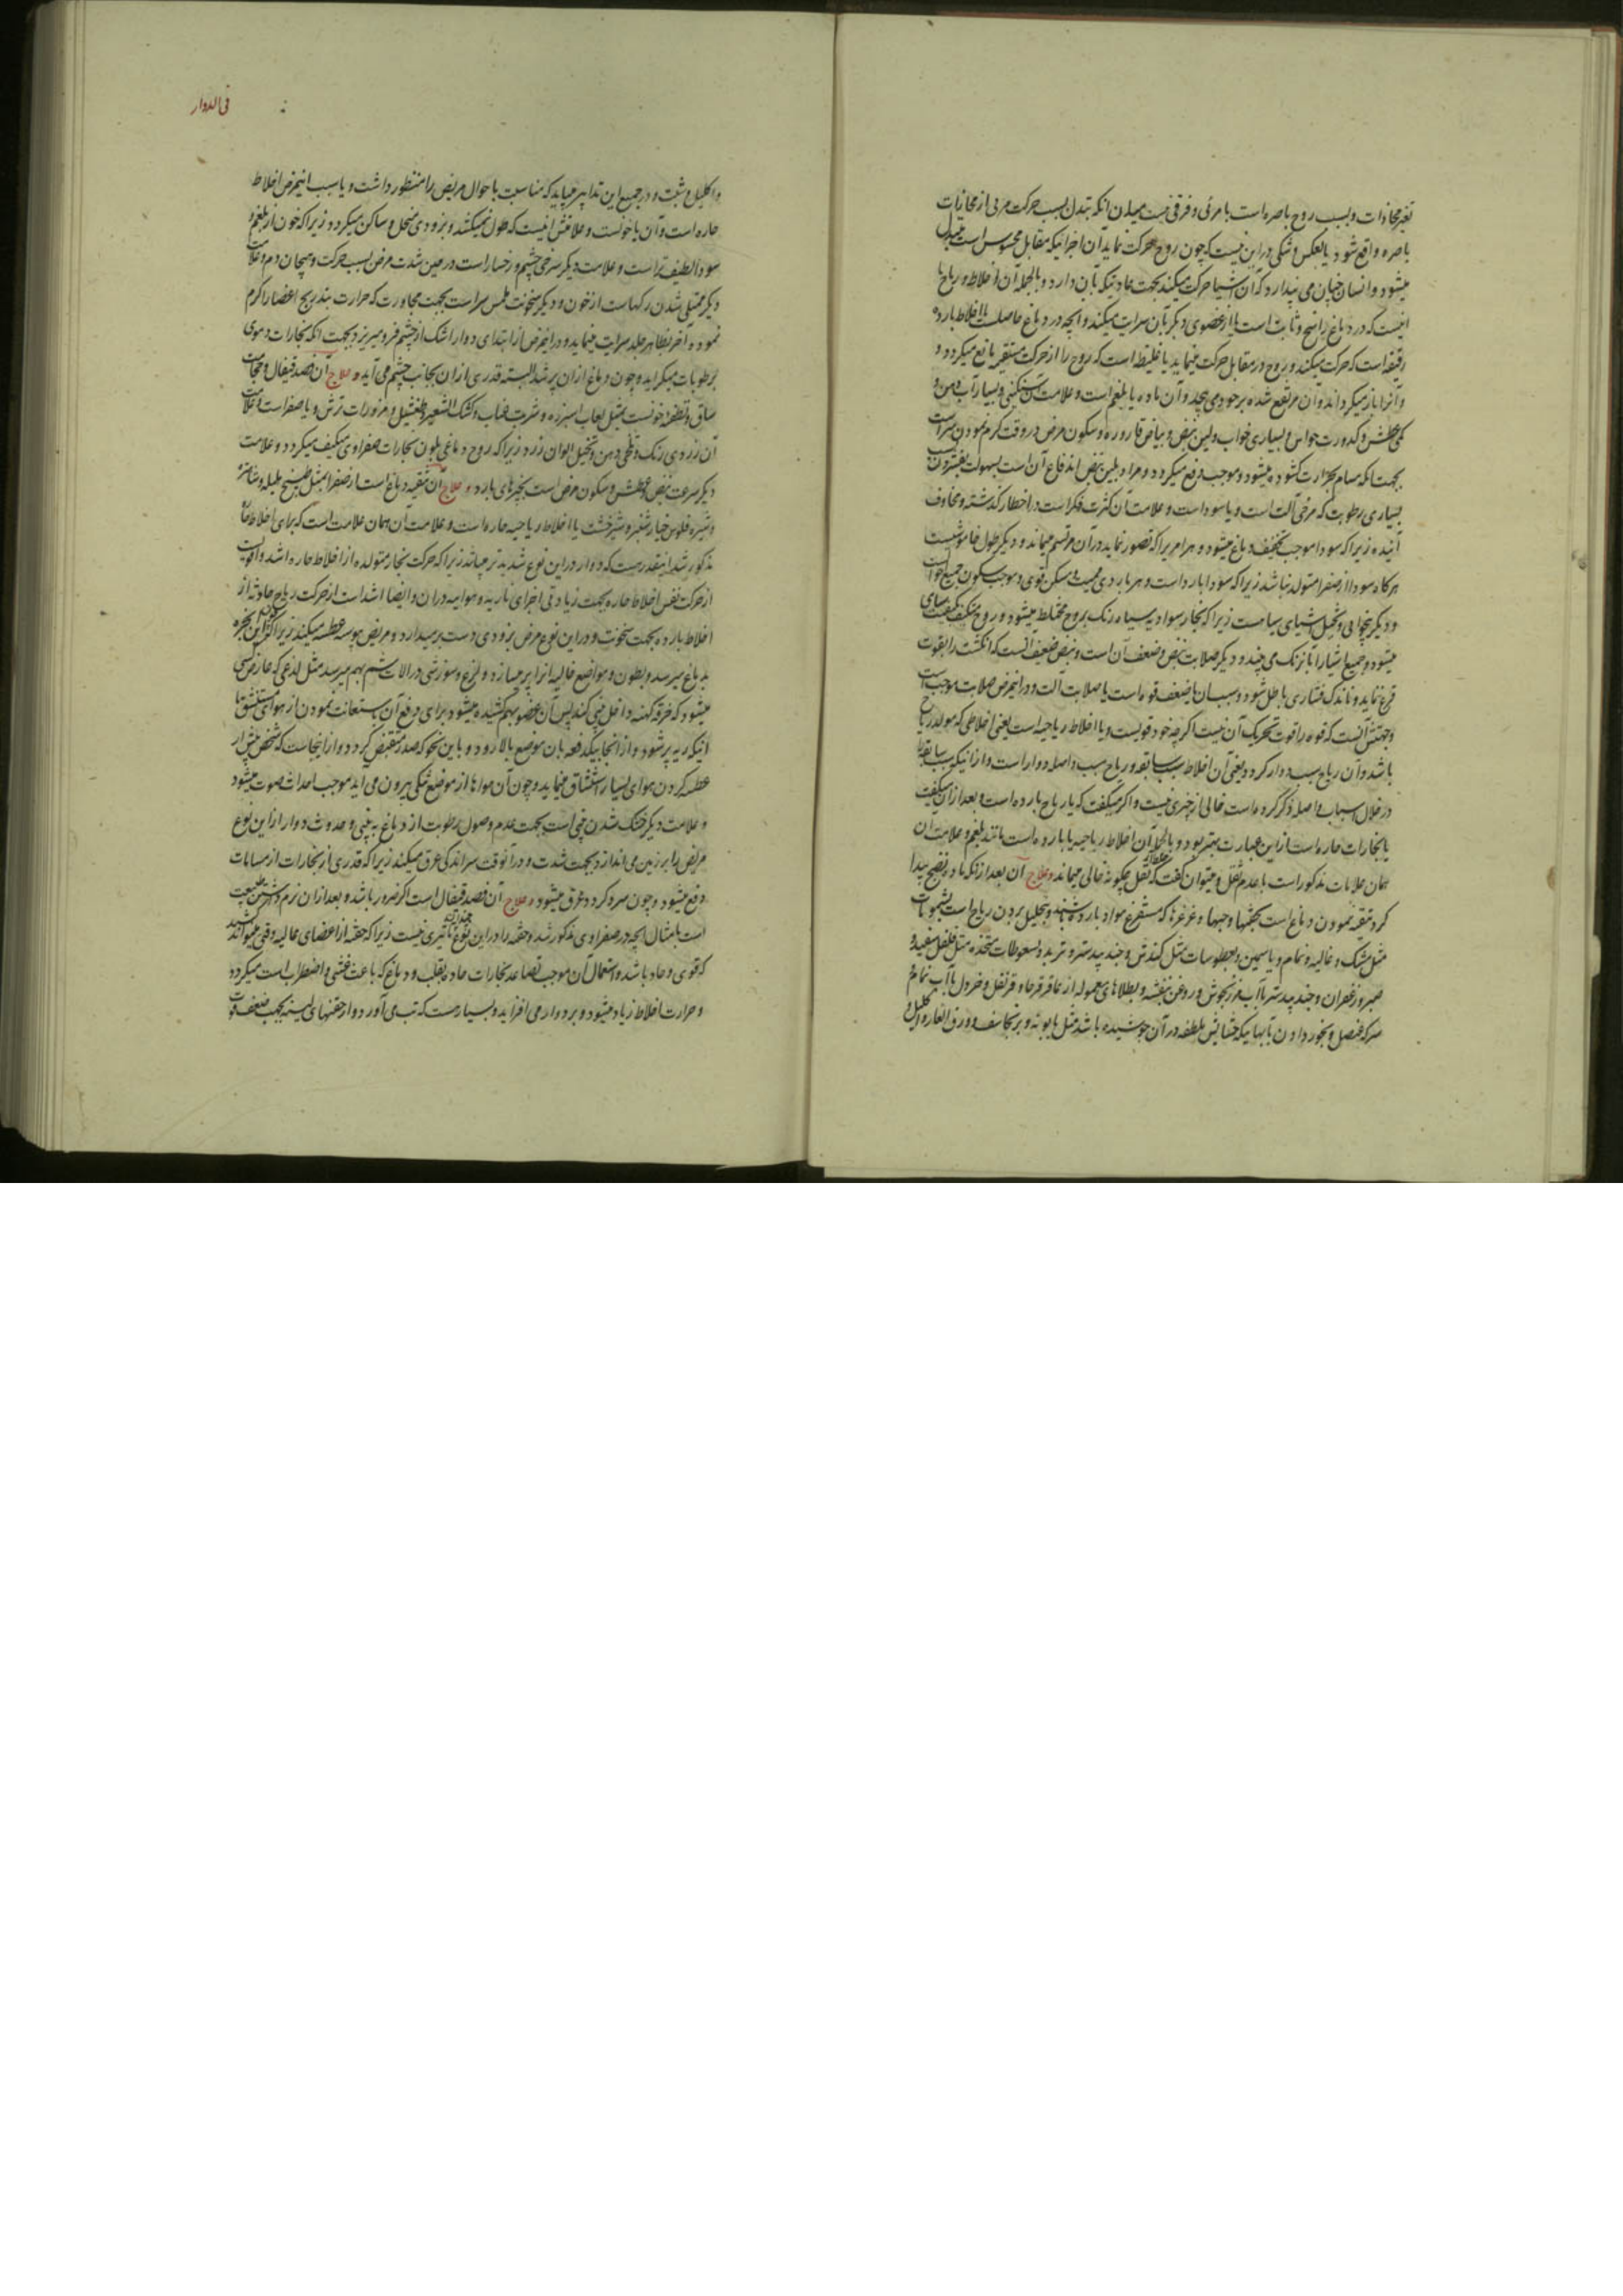 تغیر محاذات و بسبب روح باصره است یا مرئی و فرقی نیست میان آنکه تبدل بسبب حرکت مرئی از محاذیات
باصره واقع شود یا بعکس و شکی در این نیست که چون روح حرکت نماید آن اجزائیکه مقابل محسوس است متبدل
میشود و انسان چنان می پندارد که آن اشیا حرکت میکنند بجهت عادتیکه بآن دارد و بالجمله آن اخلاط و ریاح یا
اینست که در دماغ راسخ و ثابت است یا از عضوی دیگر بآن سرایت میکند و آنچه در دماغ حاصلست یا اخلاط بارده
رقیقه است که حرکت میکند و روح در مقابل حرکت مینماید یا غلیظ است که روح را از حرکت مستقیم مانع میگردد و
و آنرا باز میگرداند و آن مرتفع شده بر خود می پیچد و آن ماده یا بلغم است و علامت آن سنگینی و بسیار آب دهن و
کمی عطش و کدورت حواس و بسیاری خواب و لین نبض و بیاض قاروره و سکون مرض در وقت گرم نمودن سر است
بجهت آنکه مسام بحرارت گشوده میشود و موجب دفع میگردد و مراد بلین نبض اندفاع آن است بسهولت بفشردن
بسیاری رطوبت که مرخی آلت است و یا سودا است و علامت آن کثرت فکر است در اخطار گذشته و مخاوف
آینده زیرا که سودا موجب تجفیف دماغ میشود و هر امریرا که تصور نماید در آن مرتسم میماند و دیگر طول خاموشیست
هر گاه سودا از صفرا متولد نباشد زیرا که سودا بارد است و هر باردی ممیت و مسکن قوی و موجب سکون جمیع حواس است
و دیگر بیخوابی و تخیل اشیای سیاهست زیرا که بخار سوداویه سیاه رنگ بروح مختلط میشود و روح متکیف بکیفیت سیاهی
میشود و جمیع اشیا را بآن رنگ می بیند و دیگر صلابت نبض و ضعف آن است و نبض ضعیف آنست که انگشت را بقوت
قرع نماید و باندک فشاری باطل شود و سبب آن یا ضعف قوه است یا صلابت آلت و در این مرض صلابت موجب است
و جهتش آنست که قوه را قوت تحریک آن نیست اگرچه خود قویست و یا اخلاط ریاحیه است یعنی اخلاطی که مولد ریاح
باشد و آن ریاح سبب دوار گردد یعنی آن اخلاط سبب سابقه و ریاح سبب واصله دوار است و از اینکه سبب سابقه را
در خلال اسباب واصله ذکر کرده است خالی از چیزی نیست و اگر میگفت که یا ریاح بارده است و بعد از آن میگفت
یا بخارات حاره است از این عبارت بهتر بود و بالجمله آن اخلاط ریاحیه یا بارده است مانند بلغم و علامت آن
همان علامات مذکور است با عدم ثقل و میتوان گفت که ثقل چگونه خالی میماند و علاج آن بعد از آنکه ماده نضج پیدا
کرد تنقیه نمودن دماغ است بحقنها و حبها و غرغرها که مستفرغ مواد بارده باشند و بتحلیل بردن ریاح است بشمومات
مثل مشک و غالیه و نمام و یاسمین و بعطوسات مثل کندش و جند بیدستر و تربد و بسعوطات متخذه مثل فلفل سفید و
صبر و زعفران و جند بیدستر با آب مرزنجوش و روغن بنفشه و بطلاهای معموله از عاقرقرحا و قرنفل و خردل با آب نمام
سرکه عنصل و بخور دادن بآبهائیکه حشایش ملطفه در آن جوشیده باشد مثل بابونه و برنجاسف و ورق الغار و اکلیل و
فی الدوار
و اکلیل و شبت و در جمیع این تدابیر میباید که مناسبت باحوال مریض را منظور داشت و یا سبب این مرض اخلاط
حاره است و آن یا خونست و علامتش اینست که طول نمیکشد و بزودی متحل و ساکن میگردد زیرا که خون از بلغم و
سودا لطیف تر است و علامت دیگر سرخی چشم و رخسار است در حین شدت مرض بسبب حرکت و هیجان دم و علامت
دیگر ممتلی شدن رگهاست از خون و دیگر سخونت ملمس سر است بجهت مجاورت که حرارت بتدریج اعضا را گرم
نموده آخر بظاهر جلد سرایت مینماید و در این مرض از ابتدای دوار اشک از چشم فرو میریزد بجهت آنکه بخارات دموی
برطوبات میگراید و چون دماغ از آن پر شد البته قدری از آن بجانب چشم می آید و علاج آن فصد قیفال و حجامت
ساق و تطفیه خونست بمثل لعاب اسبرزه و شربت عناب و کشک الشعیر و طفشیل و مزورات ترش و یا صفرا است و علامت
آن زردی رنگ و تلخی دهن و تخیل الوان زرد زیرا که روح دماغی بلون بخارات صفراوی متکیف میگردد و علامت
دیگر سرعت نبض و عطش و سکون مرض است بچیزهای بارد و علاج آن تنقیه دماغ است از صفرا بمثل طبیخ هلیله و شاهتره
و شیره فلوس خیارشنبر و شیرخشت یا اخلاط ریاحیه حاره است و علامت آن همان علامت است که برای اخلاط حاره
مذکور شد اینقدر هست که دوار در این نوع شدیدتر میباشد زیرا که حرکت بخار متولده از اخلاط حاره اشد و اقویست
از حرکت نفس اخلاط حاره بجهت زیادتی اجزای ناریه و هوائیه در آن و ایضا اشد است از حرکت ریاح حادثه از
اخلاط بارده بجهت سخونت و در این نوع مرض بزودی دست برمیدارد و مریض پیوسته عطسه میکند زیرا که این بخره
بدماغ میرسد و بطون و مواضع خالیه آنرا پر میسازد و لذع و سوزشی در آلات شم بهم میرسد مثل لذعی که عارض کسی
میشود که خرقه کهنه داخل بینی کند پس آن عضو بهم کشیده میشود برای دفع آن باستعانت نمودن از هوای مستنشق تا
آنیکه ریه پر شود و از آنجا بیکدفعه بآن موضع بالا رود و باین نحو که صدر منقبض گردد و از اینجاست که شخص پیش از
عطسه کردن هوای بسیار استنشاق مینماید و چون آن هواها از موضع تنگی بیرون می آید موجب احداث صوت میشود
و علامت دیگر خشک شدن بینی است بجهت عدم وصول رطوبت از دماغ به بینی و حدوث دوار از این نوع
مریض را بر زمین می اندازد بجهت شدت و در آنوقت سر اندکی عرق میکند زیرا که قدری از بخارات از مسامات
دفع میشود و چون سرد گردد عرق میشود و علاج آن فصد قیفال است اگر ضرور باشد و بعد از آن نرم داشتن طبیعت
است بامثال آنچه در صفراوی مذکور شد و حقنه را در این نوع چندان تاثیری نیست زیرا که حقنه از اعضای عالیه وقتی میتواند کشید
که قوی و حاد باشد و استعمال آن موجب تصاعد بخارات حاده بقلب و دماغ که باعث غشی و اضطراب است میگردد
و حرارت اخلاط زیاد میشود و بر دوار می افزاید و بسیار هست که تب می آورد و از حقنهای لینه بجهت ضعف قوت